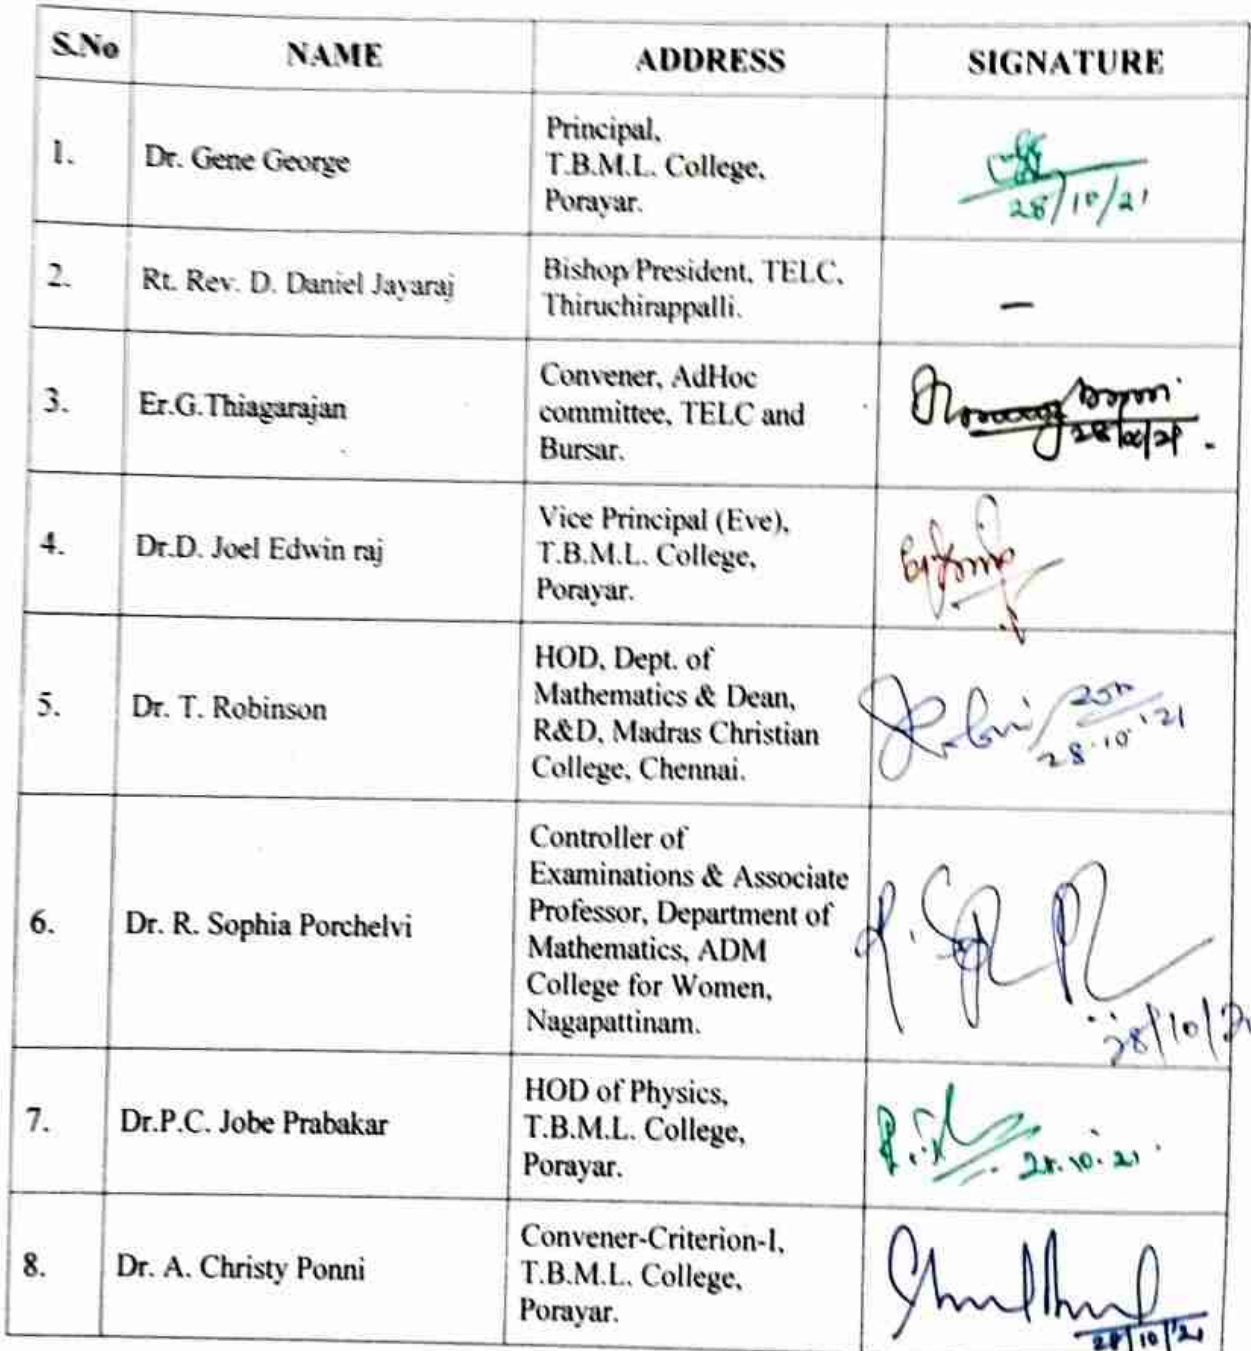 S.No NAME ADDRESS SIGNATURE
1. Dr. Gene George Principal,
T.B.M.L. College,
Porayar.
28/10/21
2. Rt. Rev. D. Daniel Jayaraj Bishop/President, TELC,
Thiruchirappalli.
–
3. Er.G.Thiagarajan Convener, AdHoc
committee, TELC and
Bursar.
28/10/21.
4. Dr.D. Joel Edwin raj Vice Principal (Eve),
T.B.M.L. College,
Porayar.
5. Dr. T. Robinson HOD, Dept. of
Mathematics & Dean,
R&D, Madras Christian
College, Chennai.
28.10.'21
6. Dr. R. Sophia Porchelvi Controller of
Examinations & Associate
Professor, Department of
Mathematics, ADM
College for Women,
Nagapattinam.
28/10/21
7. Dr.P.C. Jobe Prabakar HOD of Physics,
T.B.M.L. College,
Porayar.
28.10.21.
8. Dr. A. Christy Ponni Convener-Criterion-I,
T.B.M.L. College,
Porayar.
28/10/21